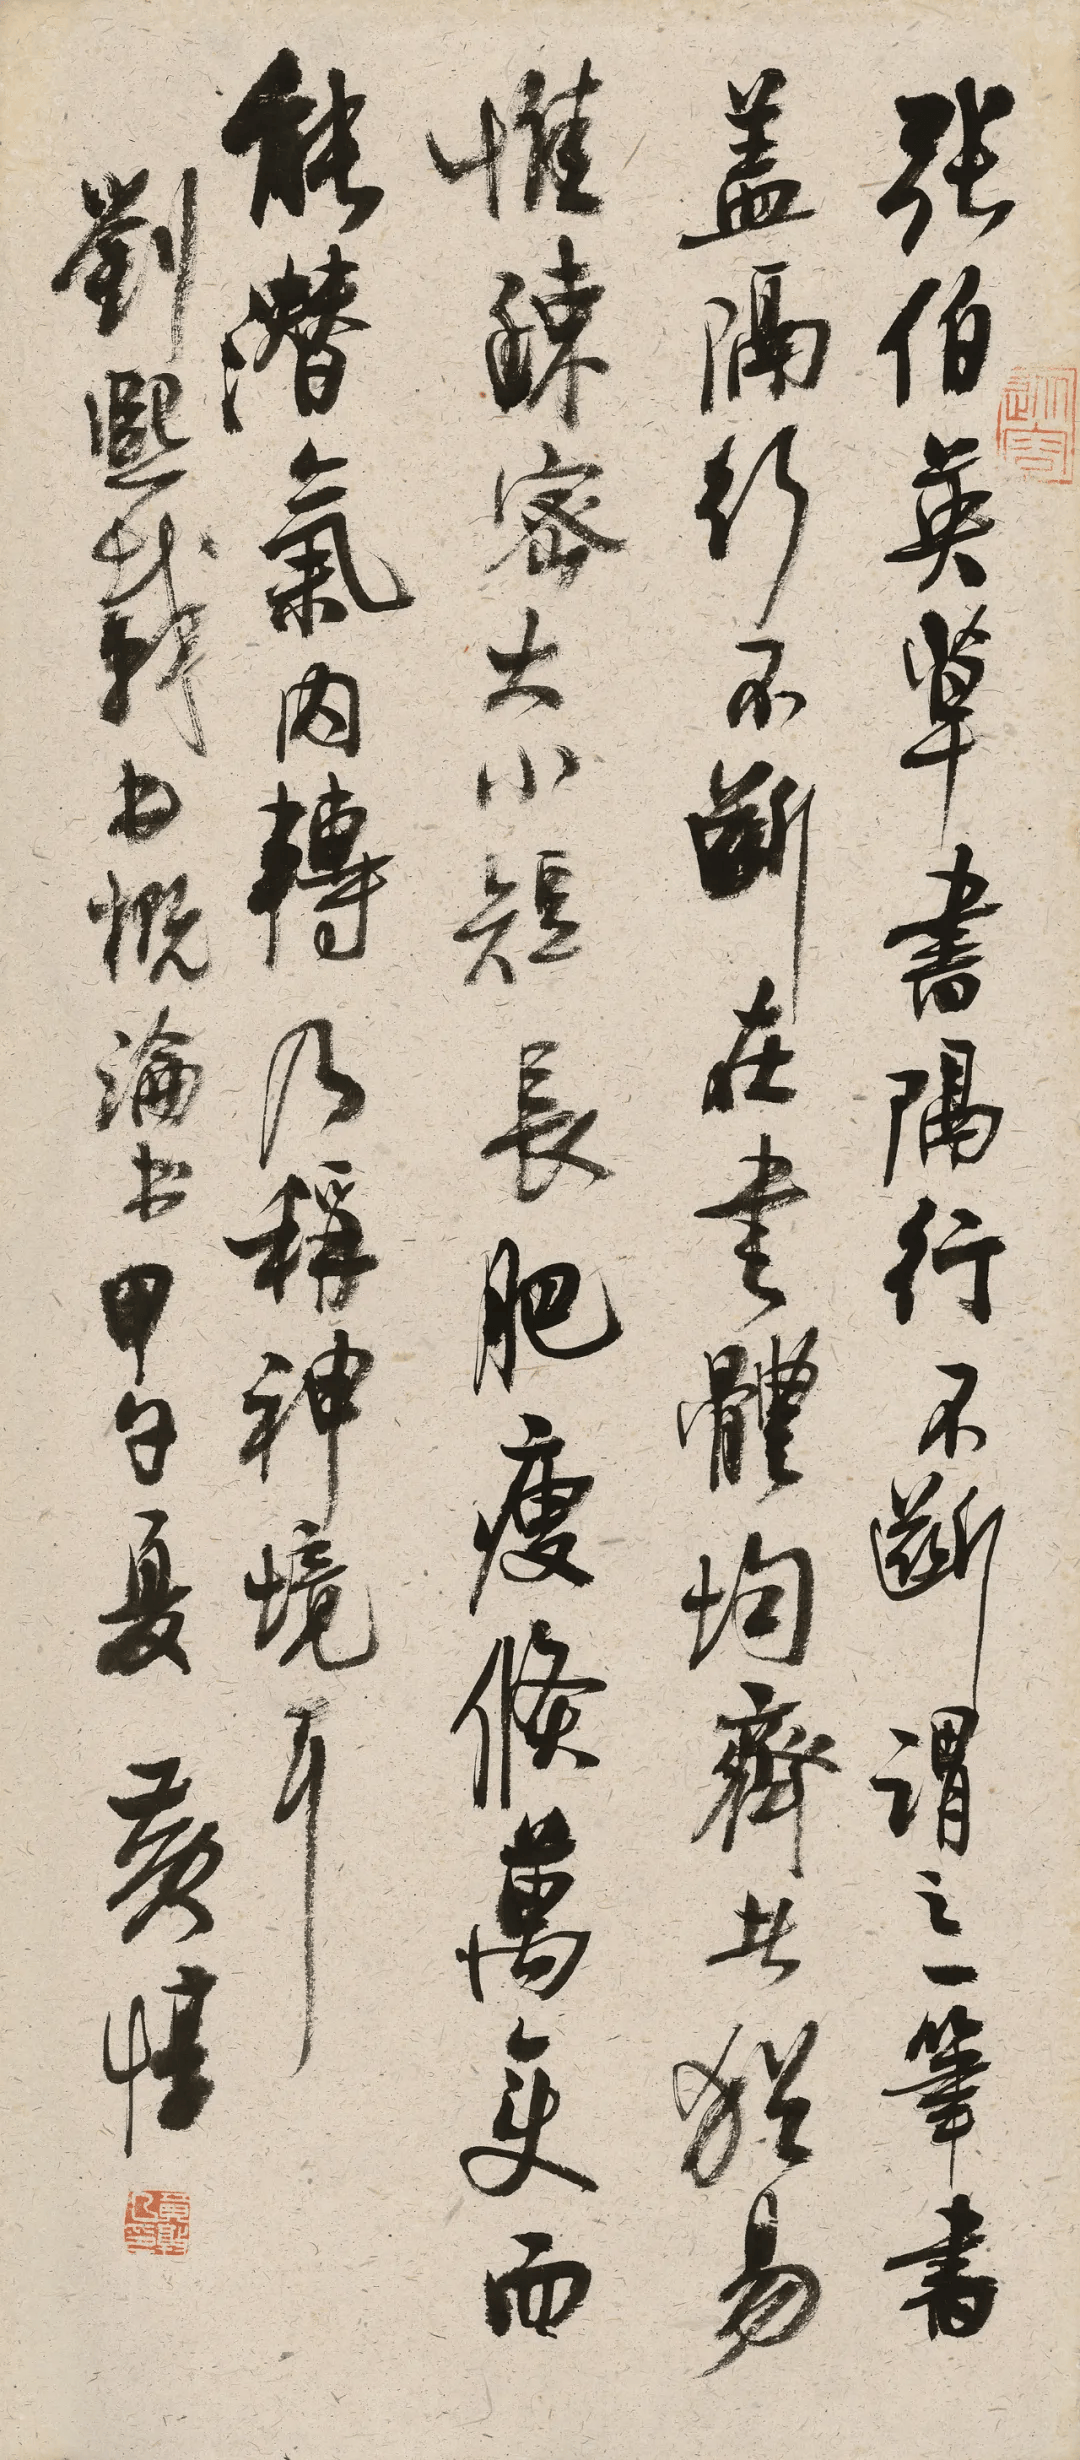 张伯英草書隔行不斷謂之一筆書
盖隔行不斷在書體均齊者猶易
惟疎密大小短長肥瘦倏萬變而
能潛氣內轉乃稱神境耳
劉熙載書概論書甲午夏 黃惇